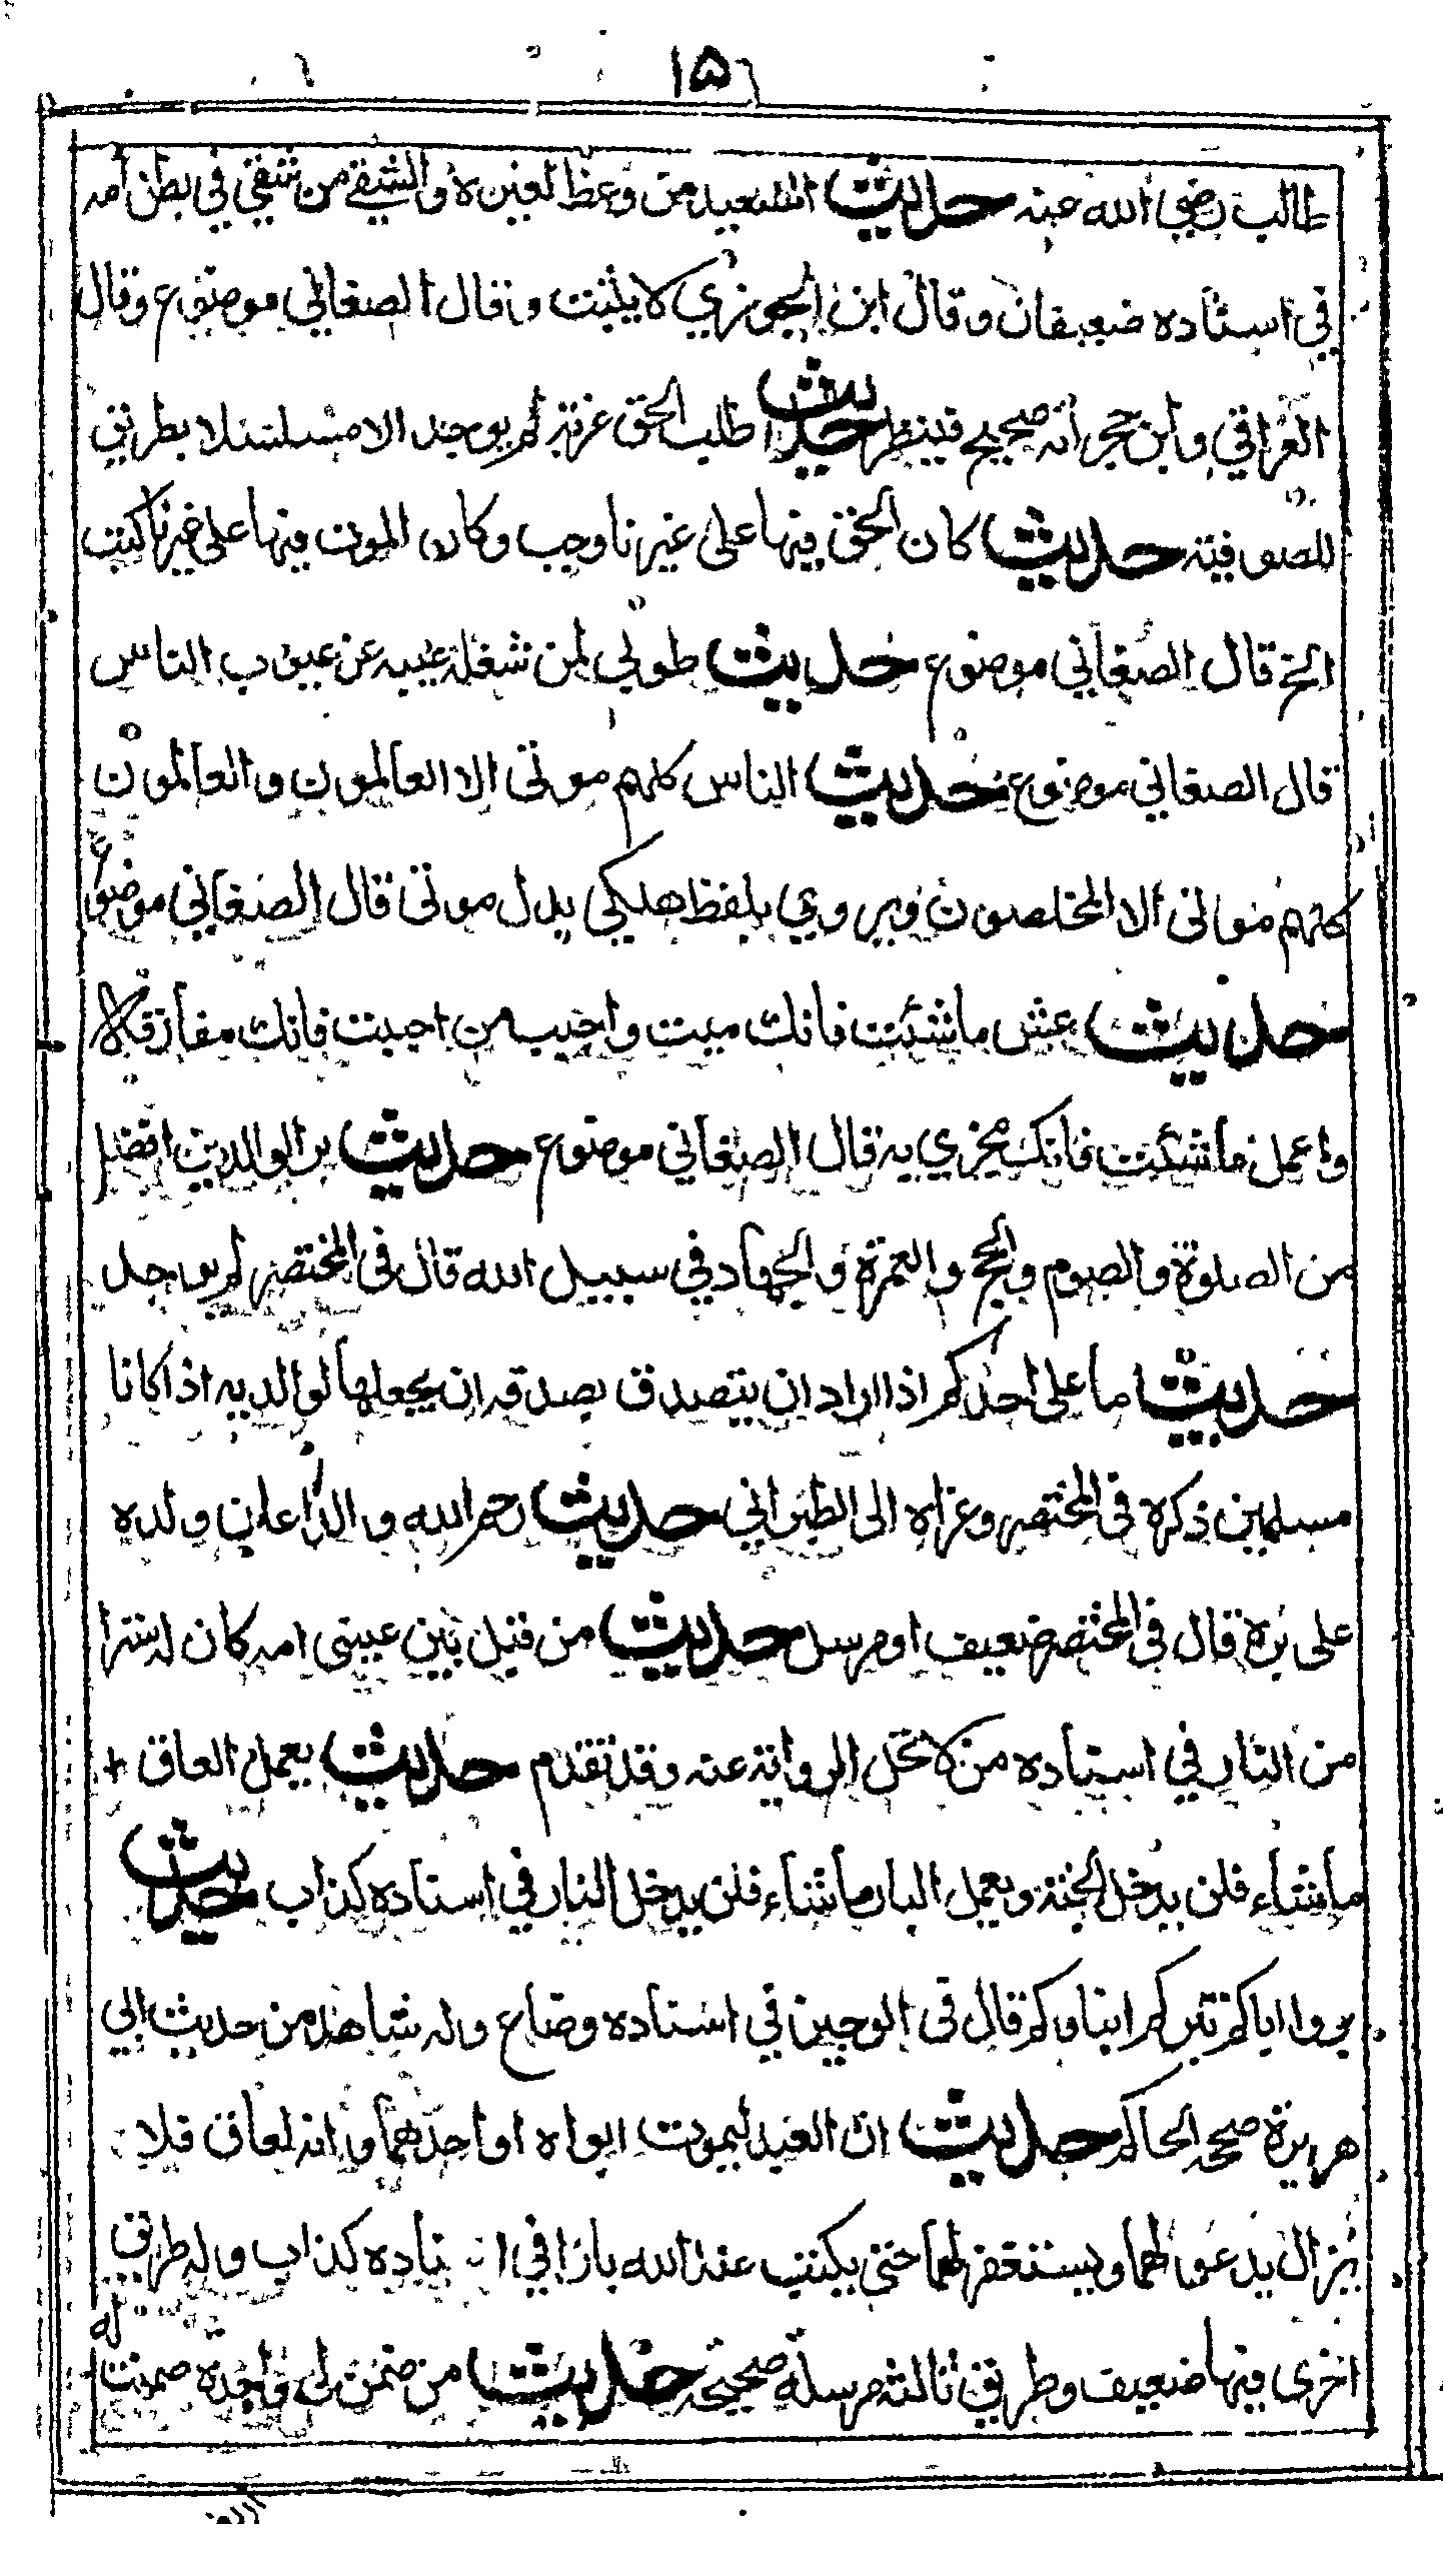 ١٥
طالب رضي الله عنه حديث السعيد من وعظ بغيره والشقي من شقي في بطن أمه
في اسناده ضعيفان وقال ابن الجوزي لا يثبت وقال الصغاني موضوع وقال
العراقي وابن حجر أنه صحيح فينظر حديث طلب الحق غربة لم يوجد الا مسلسلا بطريق
للصوفية حديث كان الحق فيها على غيرنا وجب وكان الموت فيها على غيرنا كتب
الخ قال الصغاني موضوع حديث طوبى لمن شغله عيبه عن عيوب الناس
قال الصغاني موضوع حديث الناس كلهم موتى الا العالمون والعالمون
كلهم موتى الا المخلصون ويروي بلفظ هلكى بدل موتى قال الصغاني موضوع
حديث عش ما شئت فانك ميت واحبب من احببت فانك مفارقه
واعمل ما شئت فانك مجزي به قال الصغاني موضوع حديث بر الوالدين افضل
من الصلوة والصوم والحج والعمرة والجهاد في سبيل الله قال في المختصر لم يوجد
حديث ما على احدكم اذا اراد ان يتصدق بصدقه ان يجعلها لوالديه اذا كانا
مسلمين ذكره في المختصر وعزاه الى الطبراني حديث رحم الله والدا اعان ولده
على بره قال في المختصر ضعيف او مرسل حديث من قبل بين عيني امه كان له سترا
من النار في اسناده من لا تحل الرواية عنه وقد تقدم حديث يعمل العاق
ما شاء فلن يدخل الجنة ويعمل البار ما شاء فلن يدخل النار في اسناده كذاب حديث
بروا اباكم تبركم ابناوكم قال في الوجيز في اسناده وضاع وله شاهد من حديث ابي
هريرة صححه الحاكم حديث ان العبد ليموت ابواه او احدهما وانه لعاق فلا
يزال يدعو لهما ويستغفر لهما حتى يكتب عند الله بارا في ا نياده كذاب وله طريق
اخرى فيها ضعيف وطريق ثالثه مرسله صحيحه حديث من ضمن لي واحدة ضمنت له